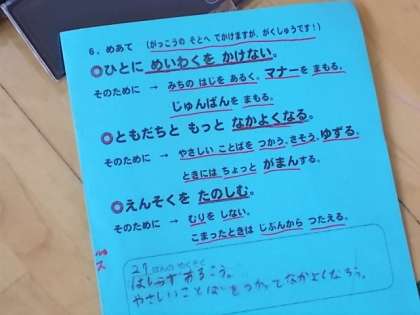 6．めあて （がっこうの そとへ でかけますが、がくしゅうです！）
◎ひとに めいわくを かけない。
そのために → みちの はじを あるく。マナーを まもる。
じゅんばんを まもる。
◎ともだちと もっと なかよくなる。
そのために → やさしい ことばを つかう。さそう。ゆずる。
ときには ちょっと がまんする。
◎えんそくを たのしむ。
そのために → むりを しない。
こまったときは じぶんから つたえる。
はしらずあるこう。
やさしいことばをつかってなかよくなろう。